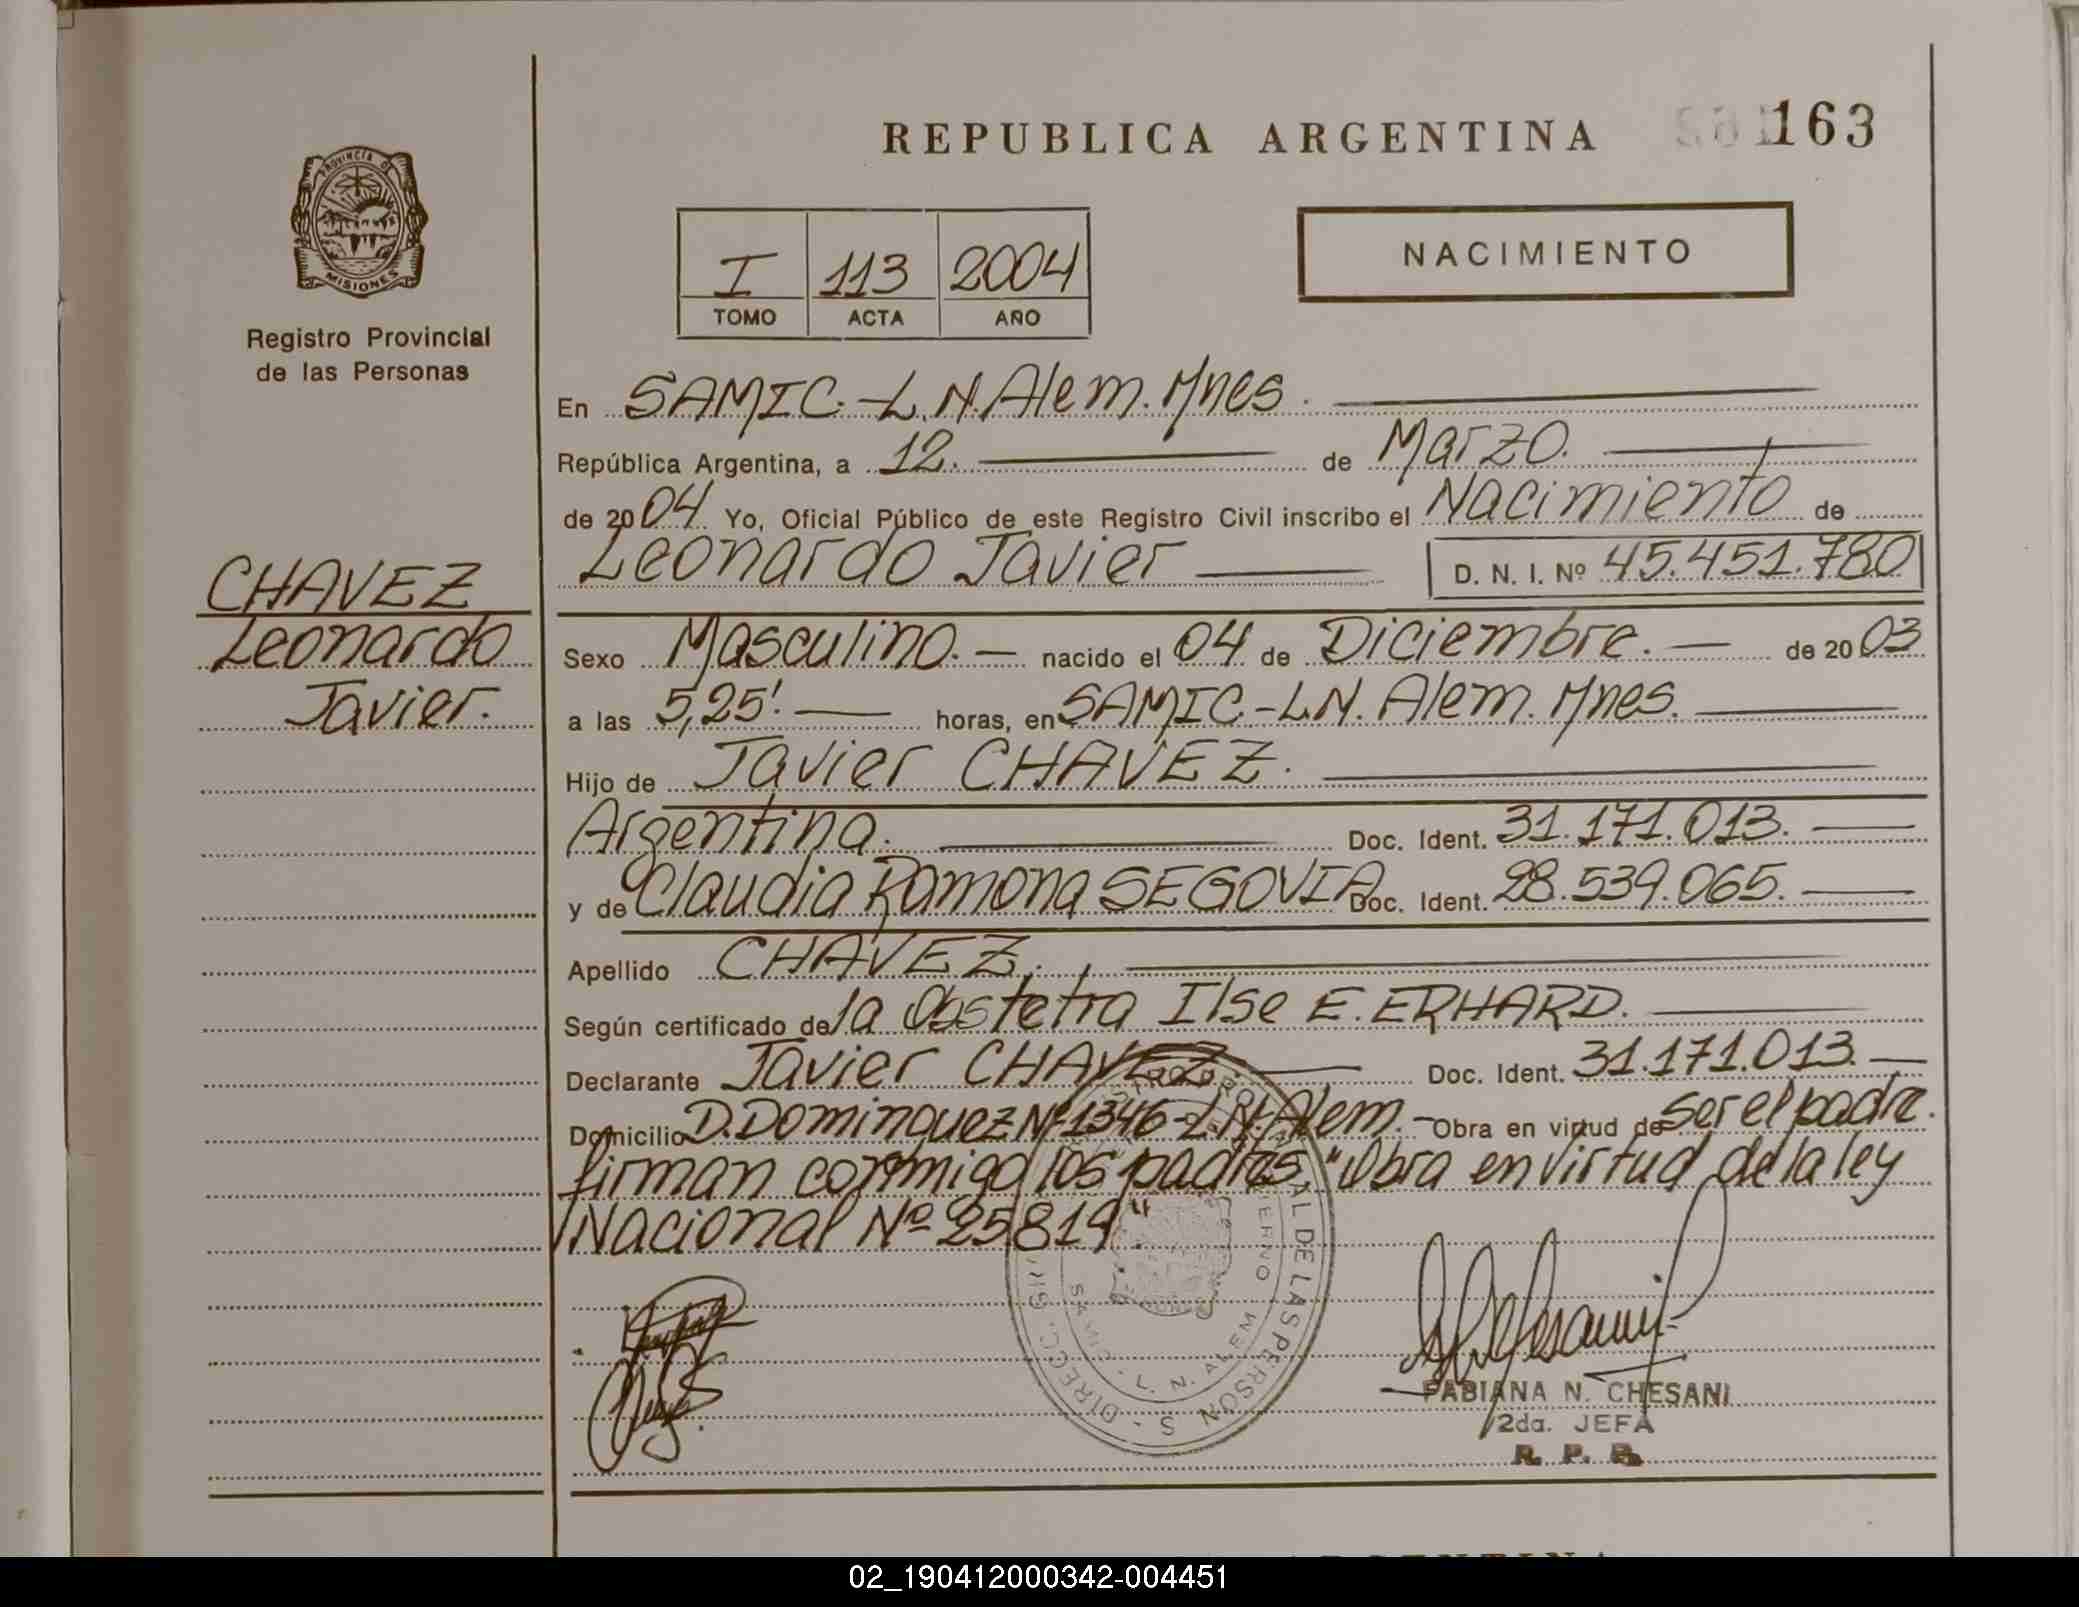 REPUBLICA ARGENTINA 163
PROVINCIA DE
MISIONES
Registro Provincial
de las Personas
I 113 2004
TOMO ACTA AÑO
NACIMIENTO
En SAMIC.-L.N.Alem.Mnes.
República Argentina, a 12. de Marzo.
de 2004 Yo, Oficial Público de este Registro Civil inscribo el Nacimiento de
Leonardo Javier D. N. I. Nº 45.451.780
CHAVEZ
Leonardo
Javier.
Sexo Masculino. nacido el 04 de Diciembre. de 2003
a las 5,25' horas, en SAMIC.-L.N. Alem. Mnes.
Hijo de Javier CHAVEZ.
Argentina. Doc. Ident. 31.171.013.
y de Claudia Ramona SEGOVIA Doc. Ident. 28.539.065.
Apellido CHAVEZ.
Según certificado de la Obstetra Ilse E. ERHARD.
Declarante Javier CHAVEZ. Doc. Ident. 31.171.013.
Domicilio D.Dominguez Nº 1346-L.N.Alem.- Obra en virtud de ser el padre.
firman conmigo los padres, "Obra en virtud de la ley
Nacional Nº 25819"
DIRECC. AL DE LAS PERSON S
SAMIC - L. N. ALEM
IERNO
FABIANA N. CHESANI
2da. JEFA
R. P. P.
02_190412000342-004451